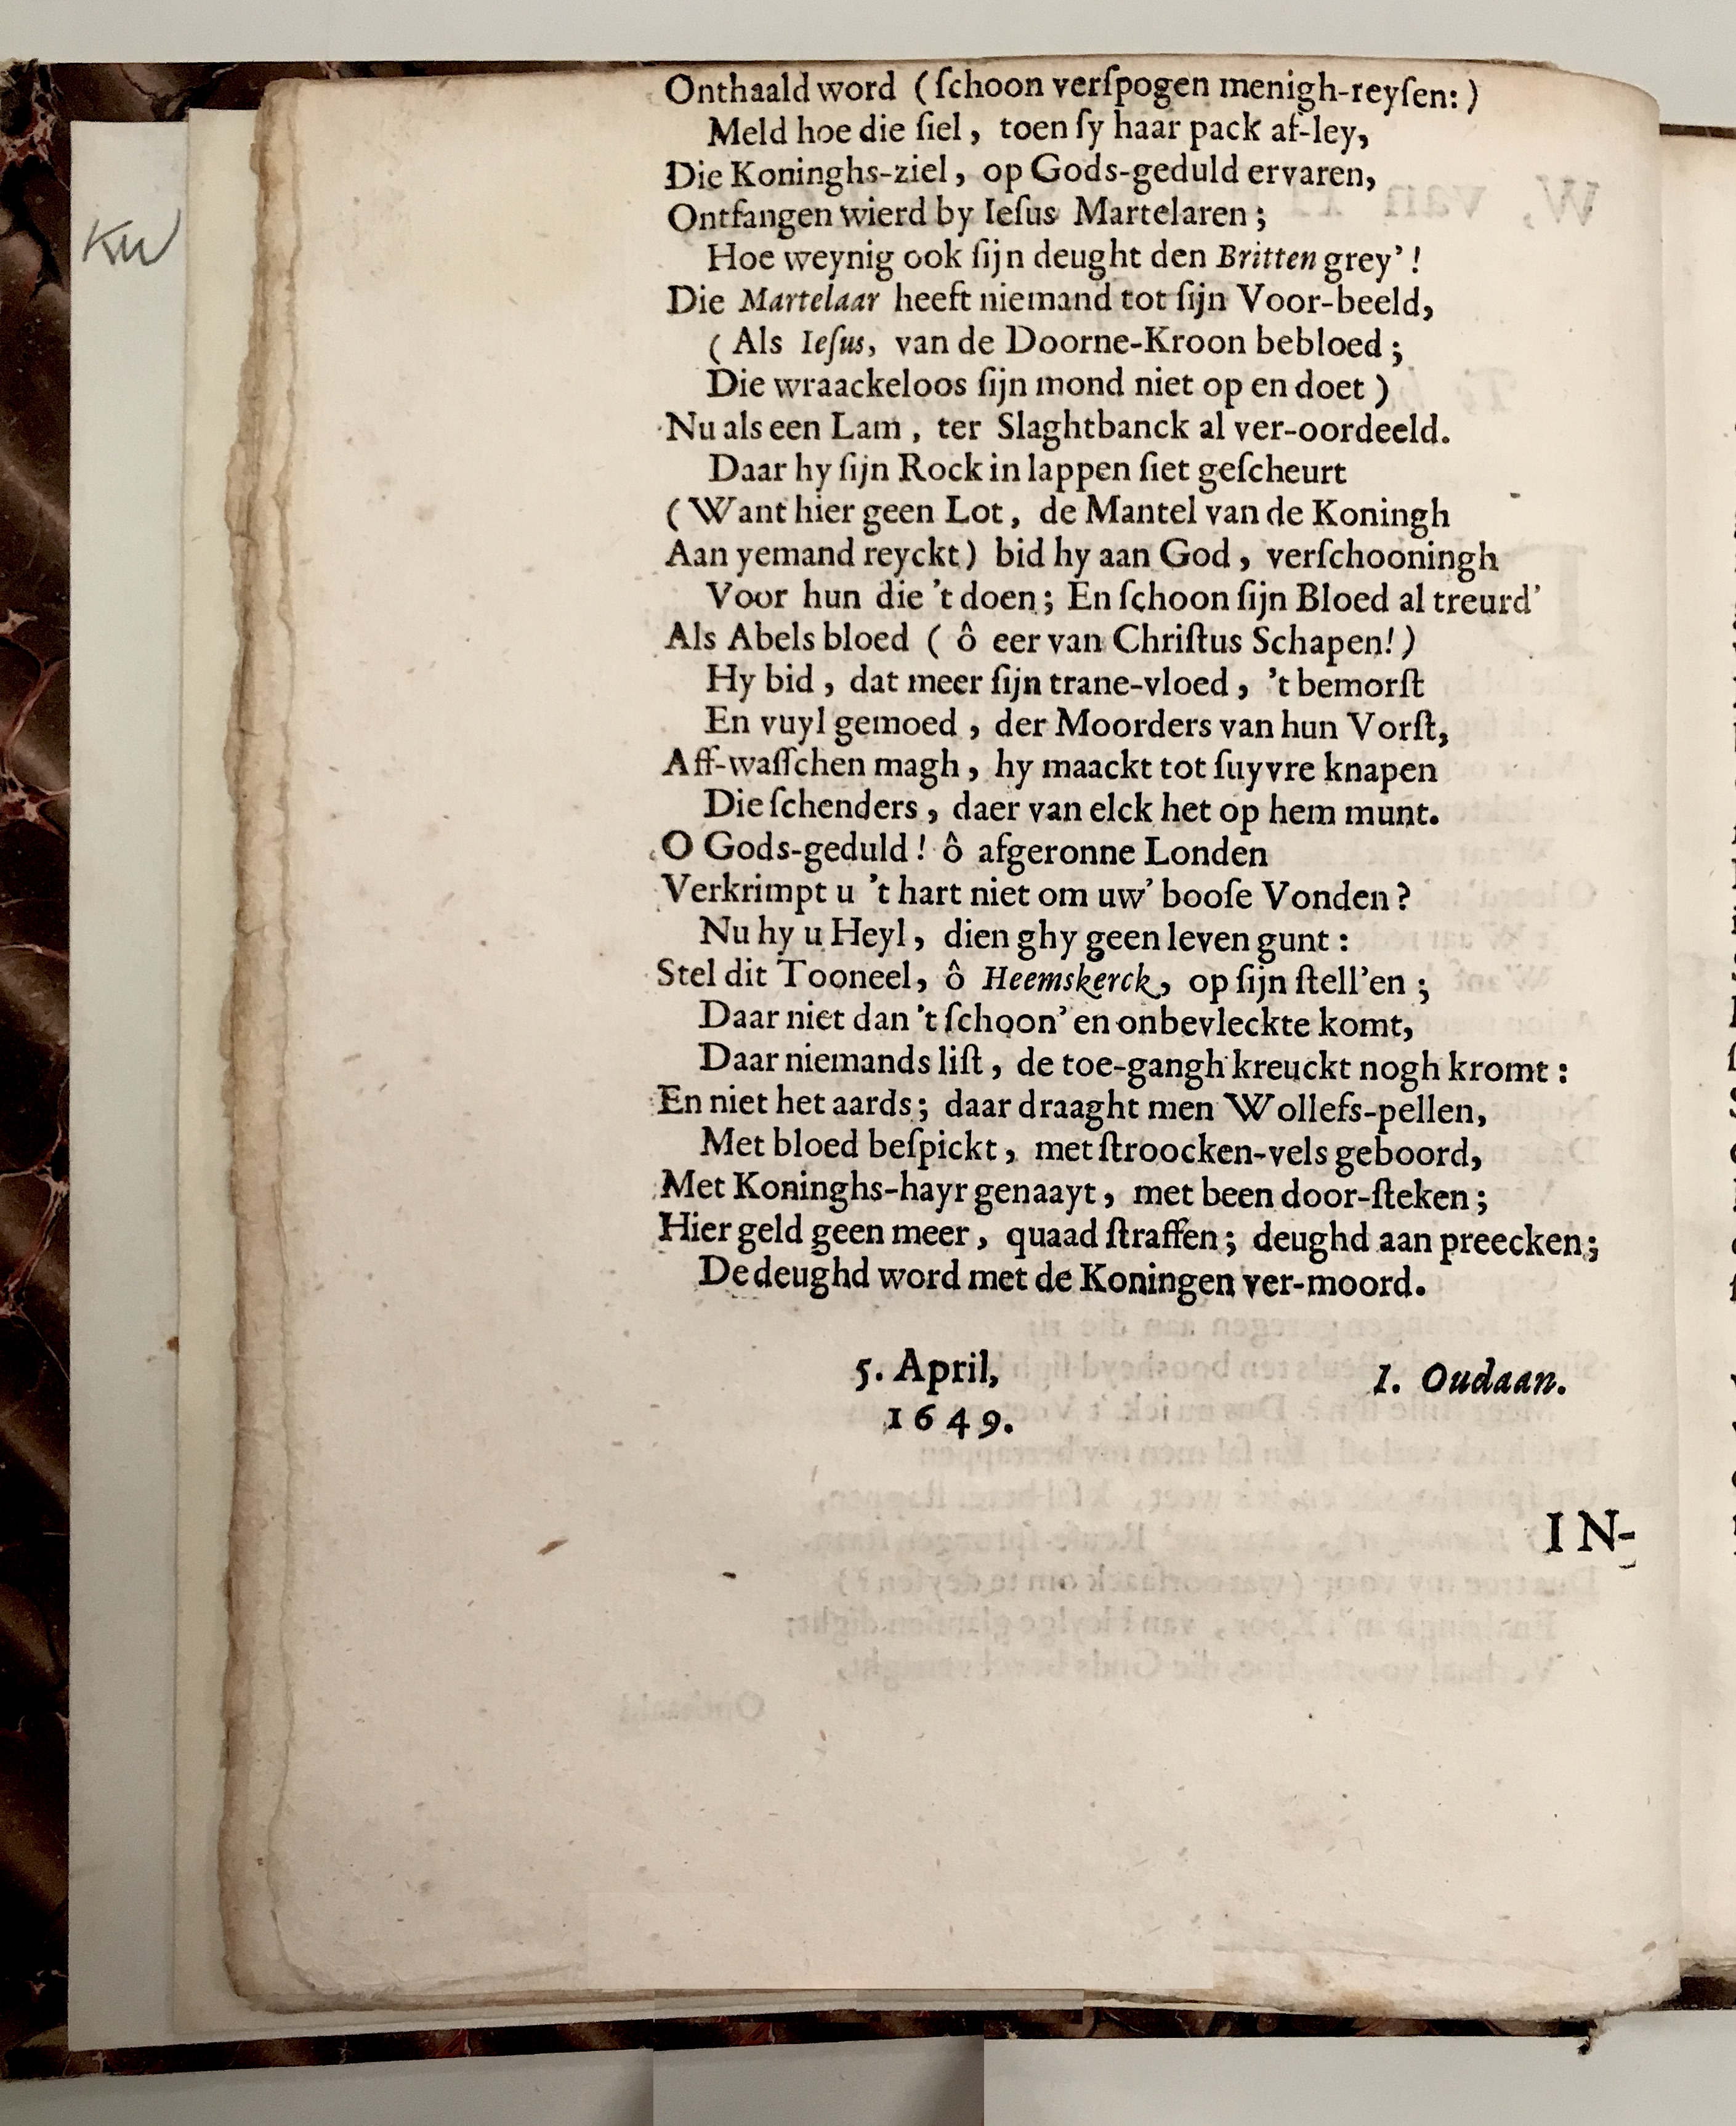 Onthaald word (ſchoon verſpogen menigh-reyſen:)
Meld hoe die ſiel, toen ſy haar pack af-ley,
Die Koninghs-ziel, op Gods-geduld ervaren,
Ontfangen wierd by Ieſus Martelaren;
Hoe weynig ook ſijn deught den Britten grey'!
Die Martelaar heeft niemand tot ſijn Voor-beeld,
(Als Ieſus, van de Doorne-Kroon bebloed;
Die wraackeloos ſijn mond niet op en doet)
Nu als een Lam, ter Slaghtbanck al ver-oordeeld.
Daar hy ſijn Rock in lappen ſiet geſcheurt
(Want hier geen Lot, de Mantel van de Koningh
Aan yemand reyckt) bid hy aan God, verſchooningh
Voor hun die 't doen; En ſchoon ſijn Bloed al treurd'
Als Abels bloed (ô eer van Chriſtus Schapen!)
Hy bid, dat meer ſijn trane-vloed, 't bemorſt
En vuyl gemoed, der Moorders van hun Vorſt,
Aff-waſſchen magh, hy maackt tot ſuyvre knapen
Die ſchenders, daer van elck het op hem munt.
O Gods-geduld! ô afgeronne Londen
Verkrimpt u 't hart niet om uw' booſe Vonden?
Nu hy u Heyl, dien ghy geen leven gunt:
Stel dit Tooneel, ô Heemskerck, op ſijn ſtell'en;
Daar niet dan 't ſchoon' en onbevleckte komt,
Daar niemands liſt, de toe-gangh kreuckt nogh kromt:
En niet het aards; daar draaght men Wollefs-pellen,
Met bloed beſpickt, met ſtroocken-vels geboord,
Met Koninghs-hayr genaayt, met been door-ſteken;
Hier geld geen meer, quaad ſtraffen; deughd aan preecken;
De deughd word met de Koningen ver-moord.
5. April,
1649.
I. Oudaan.
IN-
KW